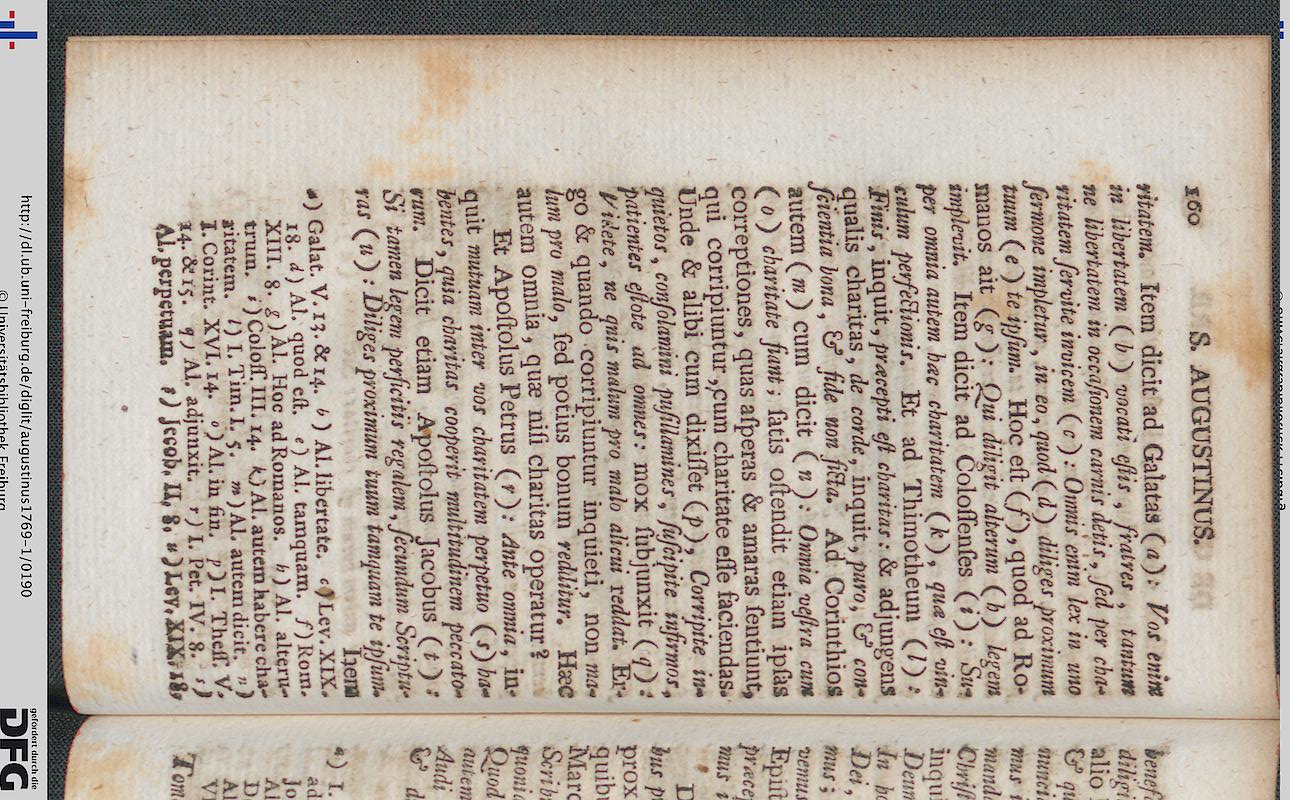 160 S. AUGUSTINUS.
ritatem. Item dicit ad Galatas (a): Vos enim
in libertatem (b) vocati eſtis, fratres, tantum
ne libertatem in occaſionem carnis detis, ſed per cha-
ritatem ſervite invicem (c): Omnis enim lex in uno
ſermone impletur, in eo, quod (d) diliges proximum
tuum (e) te ipſum. Hoc eſt (f), quod ad Ro-
manos ait (g): Qui diligit alterum (h) legem
implevit. Item dicit ad Coloſſenſes (i): Su-
per omnia autem hæc charitatem (k), quæ eſt vin-
culum perfectionis. Et ad Thimotheum (l):
Finis, inquit, præcepti eſt charitas: & adjungens
qualis charitas, de corde, inquit, puro, & con-
ſcientia bona, & fide non ficta. Ad Corinthios
autem (m) cum dicit (n): Omnia veſtra cum
(o) charitate fiant; ſatis oſtendit etiam ipſas
correptiones, quas aſperas & amaras ſentiunt,
qui corripiuntur, cum charitate eſſe faciendas.
Unde & alibi cum dixiſſet (p), Corripite in-
quietos, conſolamini puſillanimes, ſuſcipite infirmos,
patientes eſtote ad omnes: mox ſubjunxit (q):
Videte, ne quis malum pro malo alicui reddat. Er-
go & quando corripiuntur inquieti, non ma-
lum pro malo, ſed potius bonum redditur. Hæc
autem omnia, quæ niſi charitas operatur?
Et Apoſtolus Petrus (r): Ante omnia, in-
quit mutuam inter vos charitatem perpetuo (s) ha-
bentes, quia charitas cooperit multitudinem peccato-
rum. Dicit etiam Apoſtolus Jacobus (t):
Si tamen legem perficitis regalem, ſecundum Scriptu-
ras (u): Diliges proximum tuum tamquam te ipſum.
Item
a) Galat. V. 13. & 14. b) Al. libertate. c) Lev. XIX.
18. d) Al. quod eſt. e) Al. tamquam. f) Rom.
XIII. 8. g) Al. Hoc ad Romanos. h) Al. alteru-
trum. i) Coloſſ. III. 14. k) Al. autem habere cha-
ritatem. l) I. Tim. I. 5. m) Al. autem dicit. n)
I. Corint. XVI. 14. o) Al. in fin. p) I. Theſſ. V.
14. & 15. q) Al. adjunxit. r) I. Pet. IV. 8. s)
Al. perpetuam. t) Jacob. II. 8. u) Lev. XIX. 18.
benef
diligi
alio
& qu
nunci
mus i
manda
Chriſt
inqui
Deum
In ho
Dei,
mus;
venus
Epiſt
præcep
mus i
D
bus pr
prox
quibu
Marc
Scrib
quoni
Quod
autem
Audi
& d
a) I.
ad
Jo
Al
D
Al
VI
Tom
http://dl.ub.uni-freiburg.de/diglit/augustinus1769-1/0190
© Universitätsbibliothek Freiburg
gefördert durch die
DFG